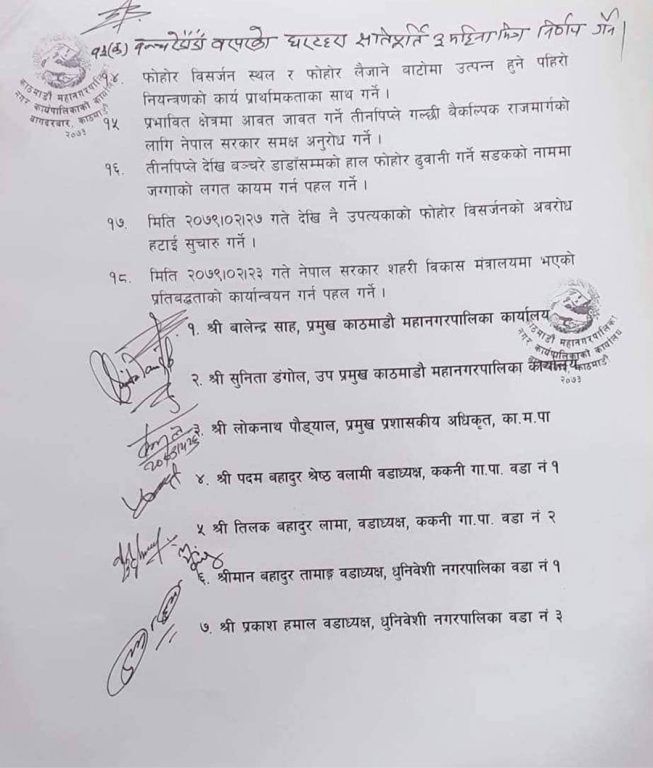 १३(क) बञ्चरेडाँडा वरपरको घरटहरा क्षतिपूर्ति ३ महिना भित्र निर्णय गर्ने।
काठमाडौं महानगरपालिका
नगर कार्यपालिकाको कार्यालय
बागदरबार, काठमाडौं
२०७३
१४. फोहोर विसर्जन स्थल र फोहोर लैजाने बाटोमा उत्पन्न हुने पहिरो
नियन्त्रणको कार्य प्राथमिकताका साथ गर्ने ।
१५ प्रभावित क्षेत्रमा आवत जावत गर्ने तीनपिप्ले गल्छी बैकल्पिक राजमार्गको
लागि नेपाल सरकार समक्ष अनुरोध गर्ने ।
१६. तीनपिप्ले देखि बञ्चरे डाडाँसम्मको हाल फोहोर ढुवानी गर्ने सडकको नाममा
जग्गाको लगत कायम गर्न पहल गर्ने ।
१७. मिति २०७९।०२।२७ गते देखि नै उपत्यकाको फोहोर विसर्जनको अवरोध
हटाई सुचारु गर्ने ।
१८. मिति २०७९।०२।२३ गते नेपाल सरकार शहरी विकास मंत्रालयमा भएको
प्रतिबद्धताको कार्यान्वयन गर्न पहल गर्ने ।
१. श्री बालेन्द्र साह, प्रमुख काठमाडौ महानगरपालिका कार्यालय
काठमाडौं महानगरपालिका
नगर कार्यपालिकाको कार्यालय
काठमाडौं
२०७३
२. श्री सुनिता डंगोल, उप प्रमुख काठमाडौ महानगरपालिका कार्यालय
३. श्री लोकनाथ पौड्याल, प्रमुख प्रशासकीय अधिकृत, का.म.पा
४. श्री पदम बहादुर श्रेष्ठ वलामी वडाध्यक्ष, ककनी गा.पा. वडा नं १
५ श्री तिलक बहादुर लामा, वडाध्यक्ष, ककनी गा.पा. वडा नं २
६. श्रीमान बहादुर तामाङ्ग वडाध्यक्ष, धुनिवेशी नगरपालिका वडा नं १
७. श्री प्रकाश हमाल वडाध्यक्ष, धुनिवेशी नगरपालिका वडा नं ३